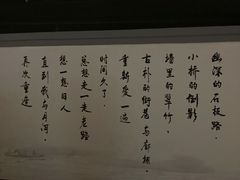 幽深的石板路．
小桥的倒影
墙里的翠竹．
古朴的街巷与廊棚．
重新爱一遍
时间久了．
总想走一走老路
想一想旧人
直到我与月河．
再次重逢